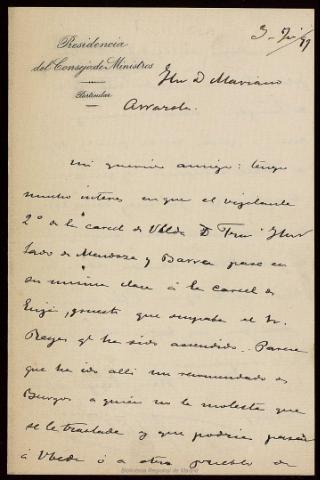 Presidencia
del Consejo de Ministros
Particular
3 - /99
Sr D Mariano
Arrazola.
Mi querido amigo: tengo
mucho interes en que el vigilante
2º de la carcel de Ubeda D Fran
de Mendoza y Barrea pase en
su misma clase á la carcel de
puesto que ocupaba el Sr.
Reyes q ha sido ascendido. Parece
que ha ido alli un recomendado de
Burgos a quien no le molesta que
se le traslade y que podria pasar
á Ubeda ó a otro pueblo de
Biblioteca Regional de Madrid